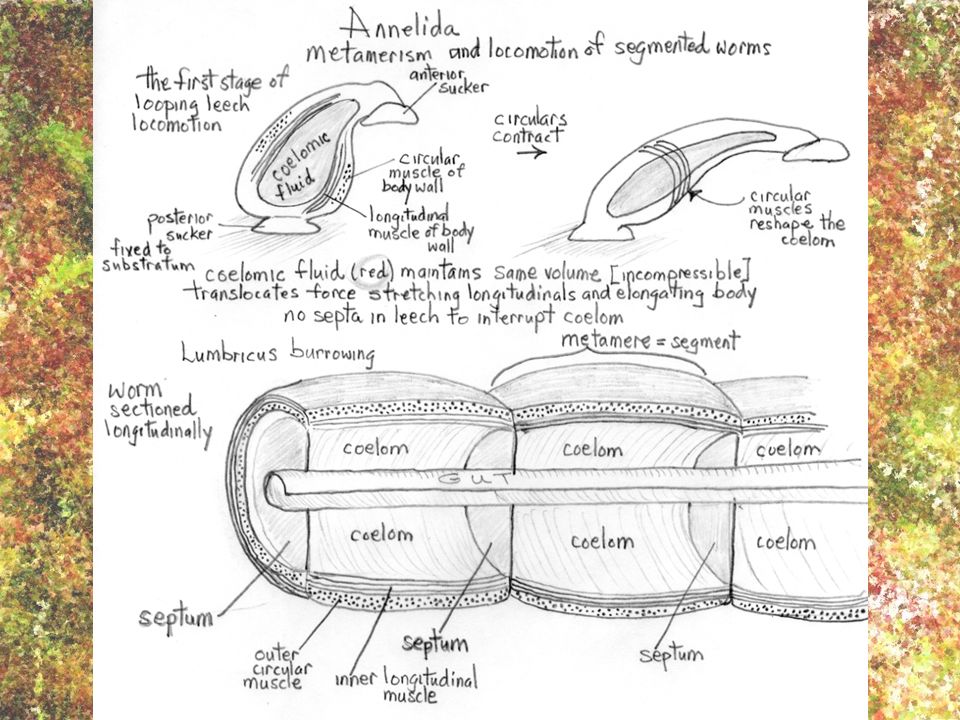 Annelida
metamerism and locomotion of segmented worms
the first stage of
looping leech
locomotion
anterior
sucker
coelomic
fluid
circular
muscle of
body wall
longitudinal
muscle of body
wall
posterior
sucker
fixed to
substratum
circulars
contract
circular
muscles
reshape the
coelom
coelomic fluid (red) maintains same volume [incompressible]
translocates force stretching longitudinals and elongating body
no septa in leech to interrupt coelom
metamere = segment
Lumbricus burrowing
worm
sectioned
longitudinally
coelom
coelom
coelom
GUT
coelom
coelom
coelom
septum
outer
circular
muscle
inner longitudinal
muscle
septum
septum